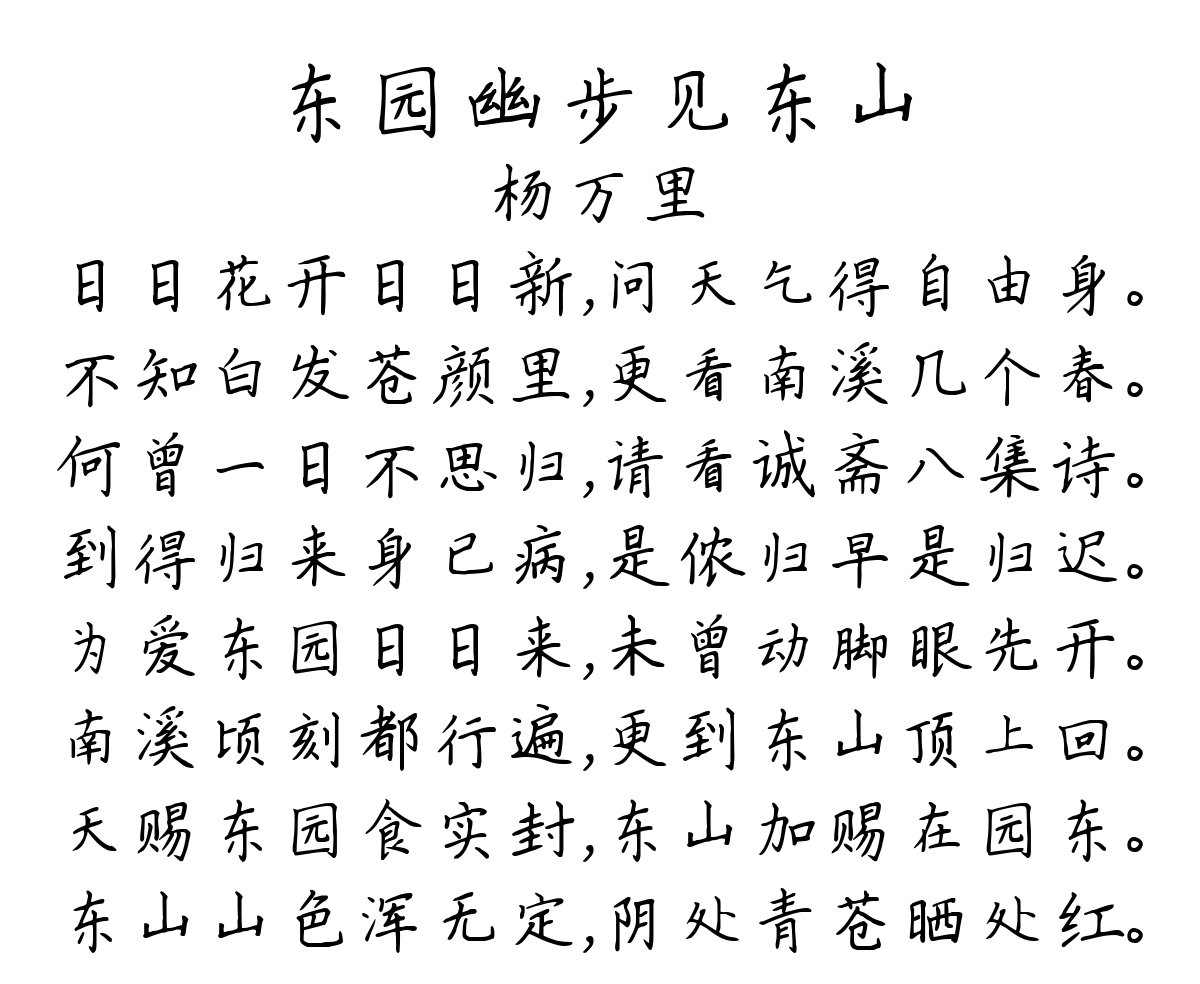 东园幽步见东山
杨万里
日日花开日日新,问天乞得自由身。
不知白发苍颜里,更看南溪几个春。
何曾一日不思归,请看诚斋八集诗。
到得归来身已病,是侬归早是归迟。
为爱东园日日来,未曾动脚眼先开。
南溪顷刻都行遍,更到东山顶上回。
天赐东园食实封,东山加赐在园东。
东山山色浑无定,阴处青苍晒处红。